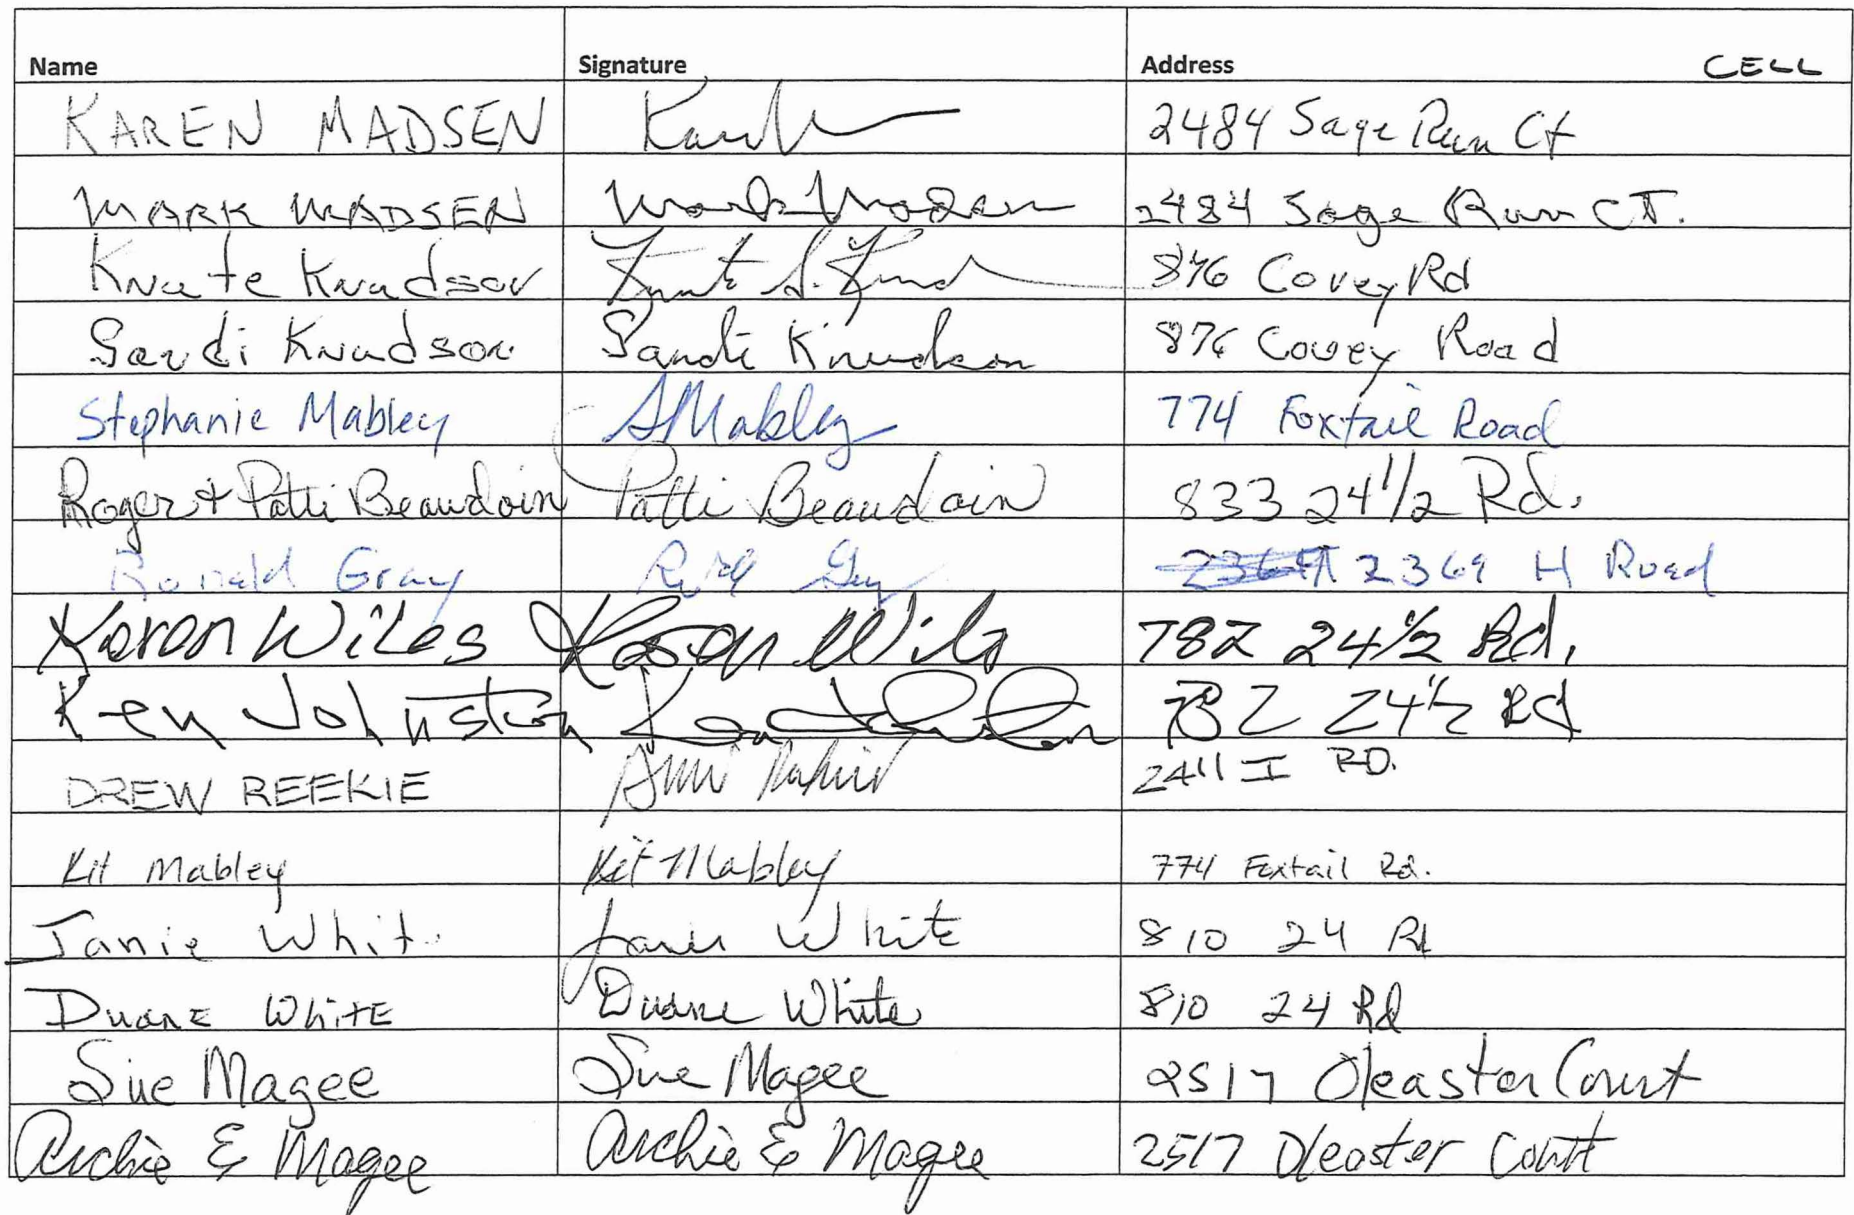 Name Signature Address CELL
KAREN MADSEN 2484 Sage Run Ct
MARK MADSEN Mark Madsen 2484 Sage Run CT.
Knute Knudson Knute S. 876 Covey Rd
Sandi Knudson Sandi Knudson 876 Covey Road
Stephanie Mabley SMabley 774 Foxtail Road
Roger + Patti Beaudoin Patti Beaudoin 833 24 1/2 Rd.
Ronald Gray 2369 H Road
Karen Wiles Karen Wiles 782 24 1/2 Rd.
Ken Johnston 782 24 1/2 Rd
DREW REEKIE 2411 I RD.
Kit Mabley Kit Mabley 774 Foxtail Rd.
Janie Whit White 810 24 Rd
Duane White Duane White 810 24 Rd
Sue Magee Sue Magee 2517 Oleaster Court
Archie E Magee Archie E Magee 2517 Oleaster Coutt